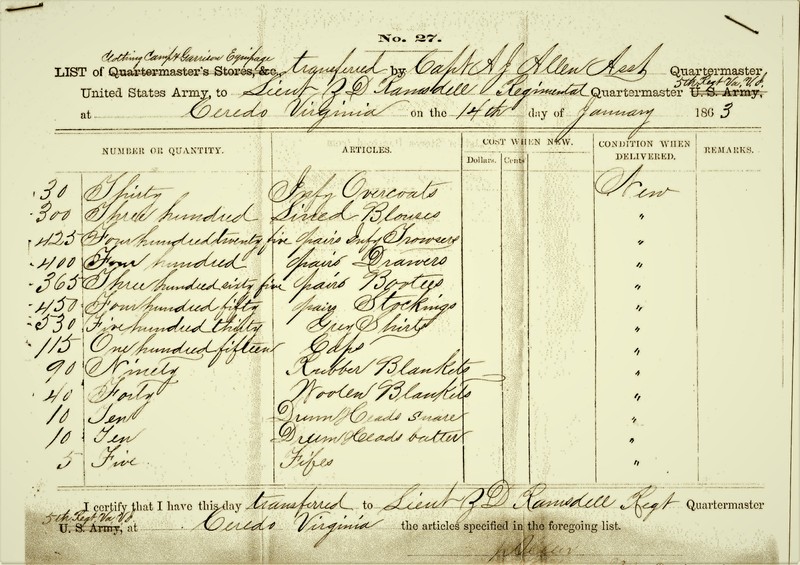 No. 27.
Clothing Camp & Garrison Equipage
LIST of Quartermaster's Stores, &c. transferred by Capt A J Allen Asst Quartermaster
United States Army, to Lieut Z D Ramsdell Regimental Quartermaster U. S. Army, 5th Regt Va. Vol.
at Ceredo Virginia on the 14th day of January 1863
NUMBER OR QUANTITY. ARTICLES. COST WHEN NEW. CONDITION WHEN DELIVERED. REMARKS.
Dollars. Cents
30 Thirty Infy Overcoats New
300 Three hundred Lined Blouses "
425 Four hundred twenty five pairs Infy Trowsers "
400 Four hundred pairs Drawers "
365 Three hundred sixty five pairs Bootees "
450 Four hundred fifty pairs Stockings "
530 Five hundred thirty Grey Shirts "
115 One hundred fifteen Caps "
90 Ninety Rubber Blankets "
40 Forty Woolen Blankets "
10 Ten Drum Heads snare "
10 Ten Drum Heads batter "
5 Five Fifes "
I certify that I have this day transferred to Lieut Z D Ramsdell Regt Quartermaster
5th Regt Va Vol.
U. S. Army, at Ceredo Virginia the articles specified in the foregoing list.